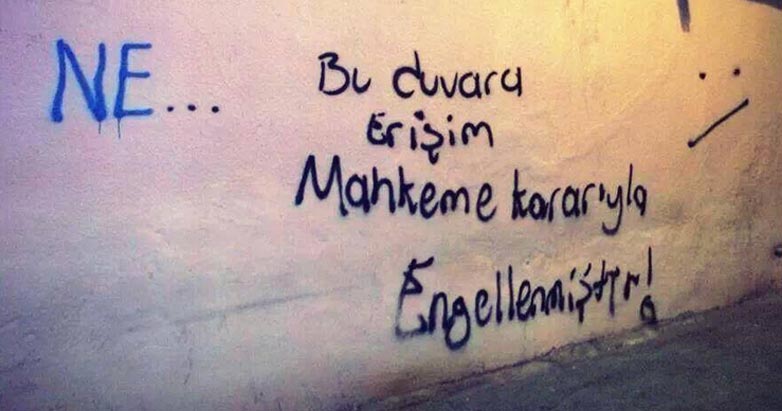 NE...
Bu duvara
Erişim
Mahkeme kararıyla
Engellenmiştir!